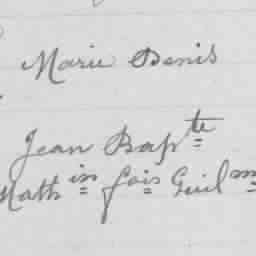 Marie Denis
Jean Bapte
Mathin fois Guilm